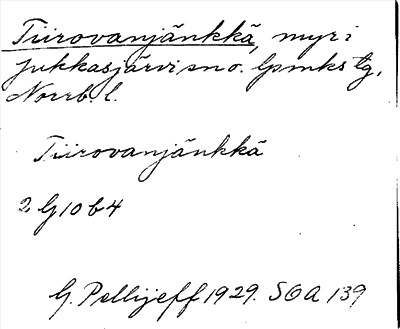 Tiirovanjänkkä, myr i
Jukkasjärvi sn o. lpmks tg,
Norrb. l.
Tiirovanjänkkä
2 G 10 b 4
G. Pellijeff 1929. SOA 139